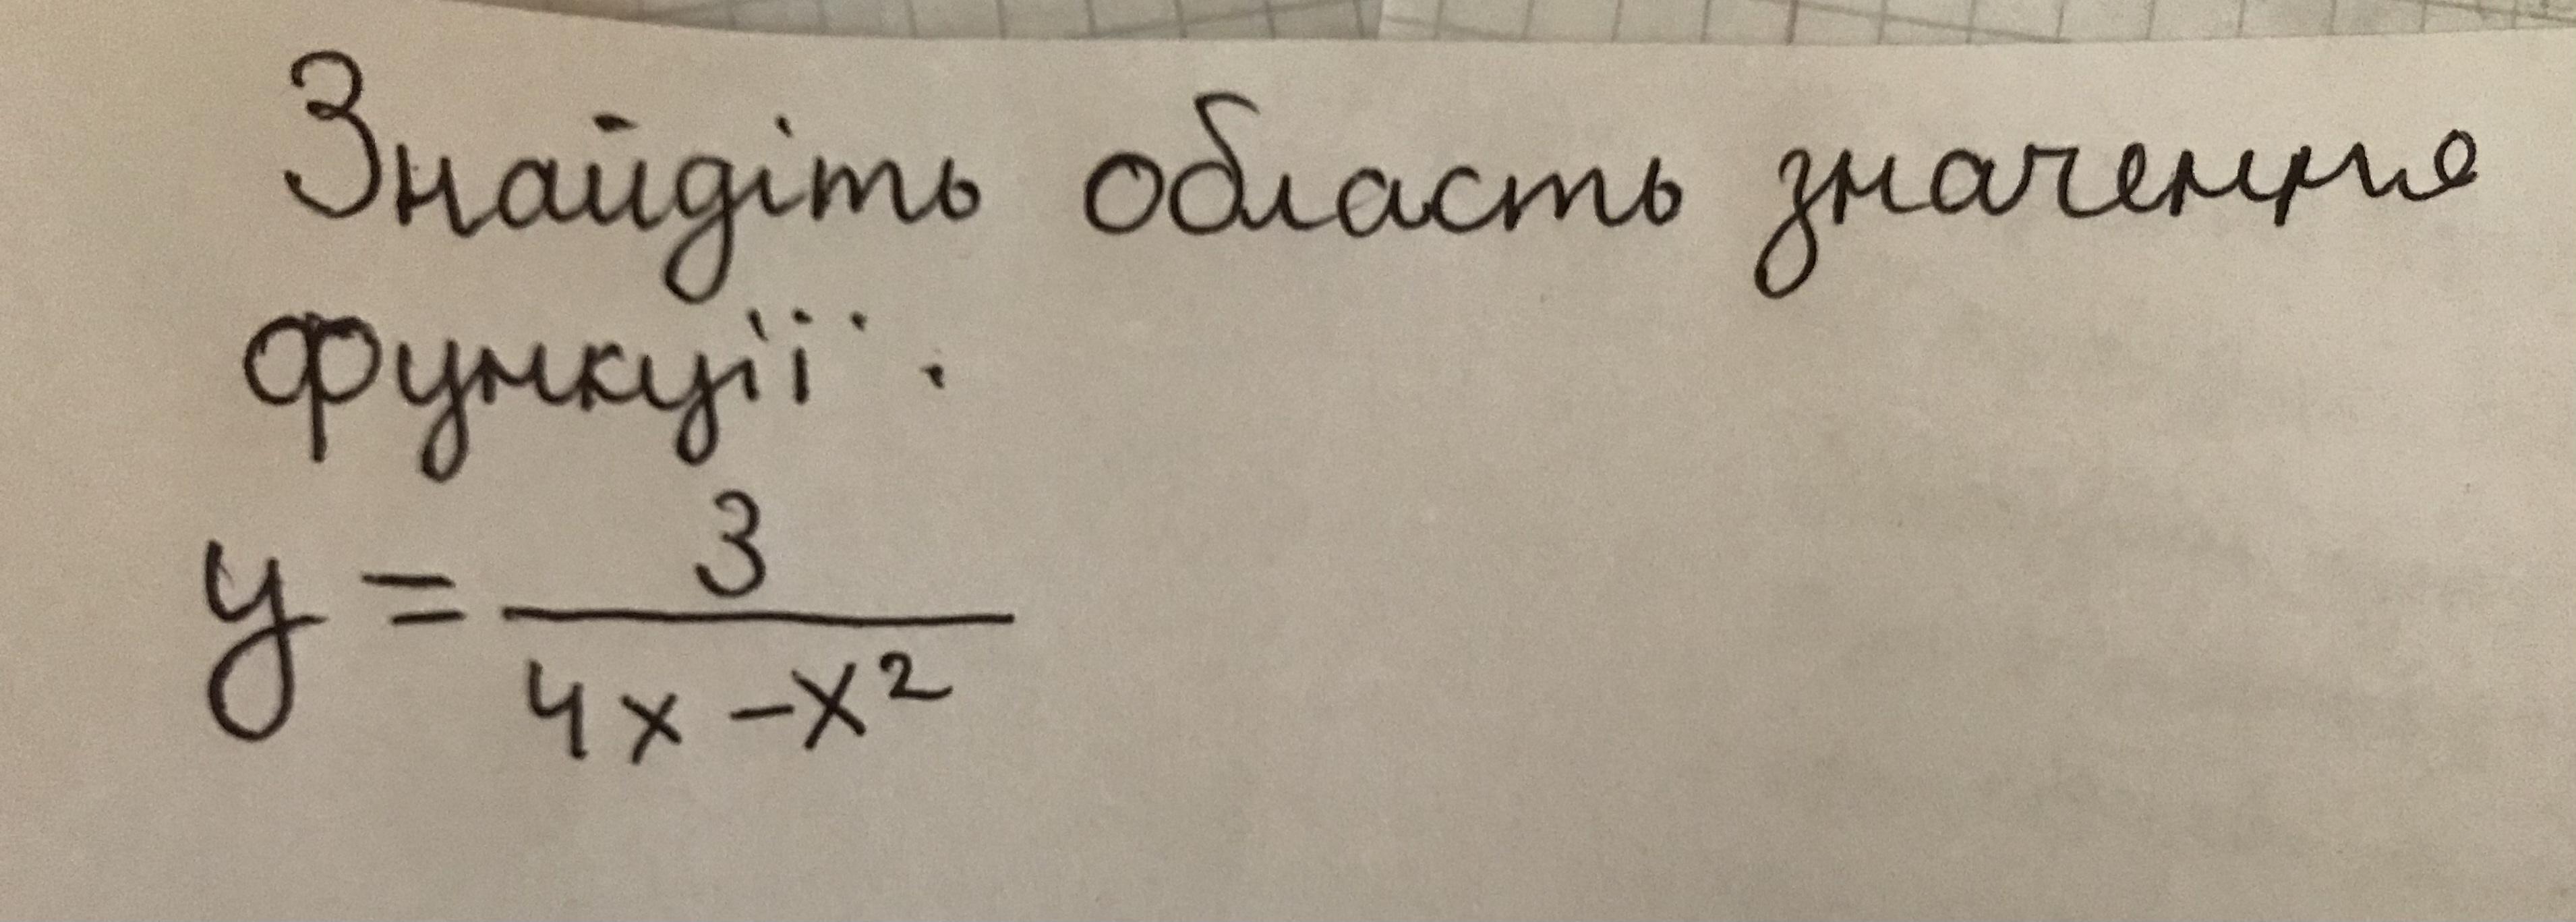 Знайдіть область значення
функції.
y = 3/(4x - x²)